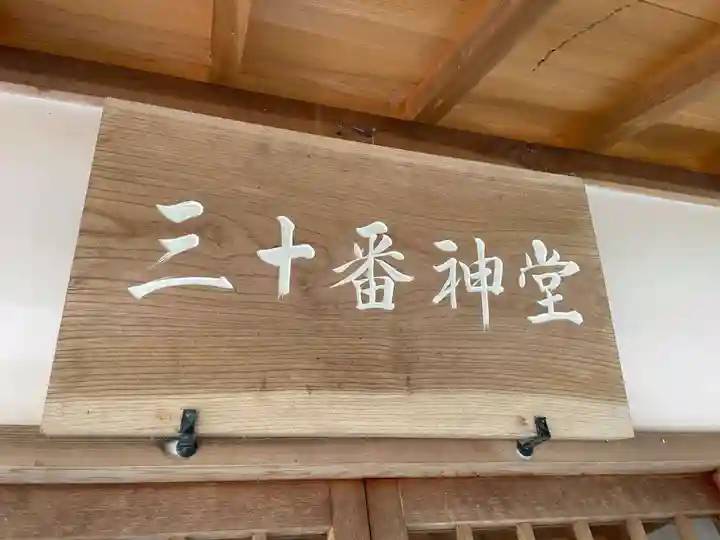 三十番神堂